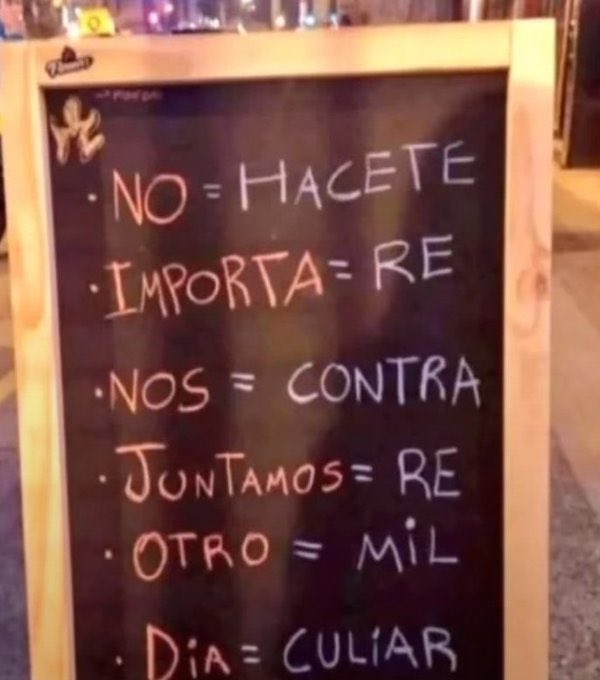 · NO = HACETE
· IMPORTA = RE
· NOS = CONTRA
· JUNTAMOS = RE
· OTRO = MiL
· DiA = CULiAR